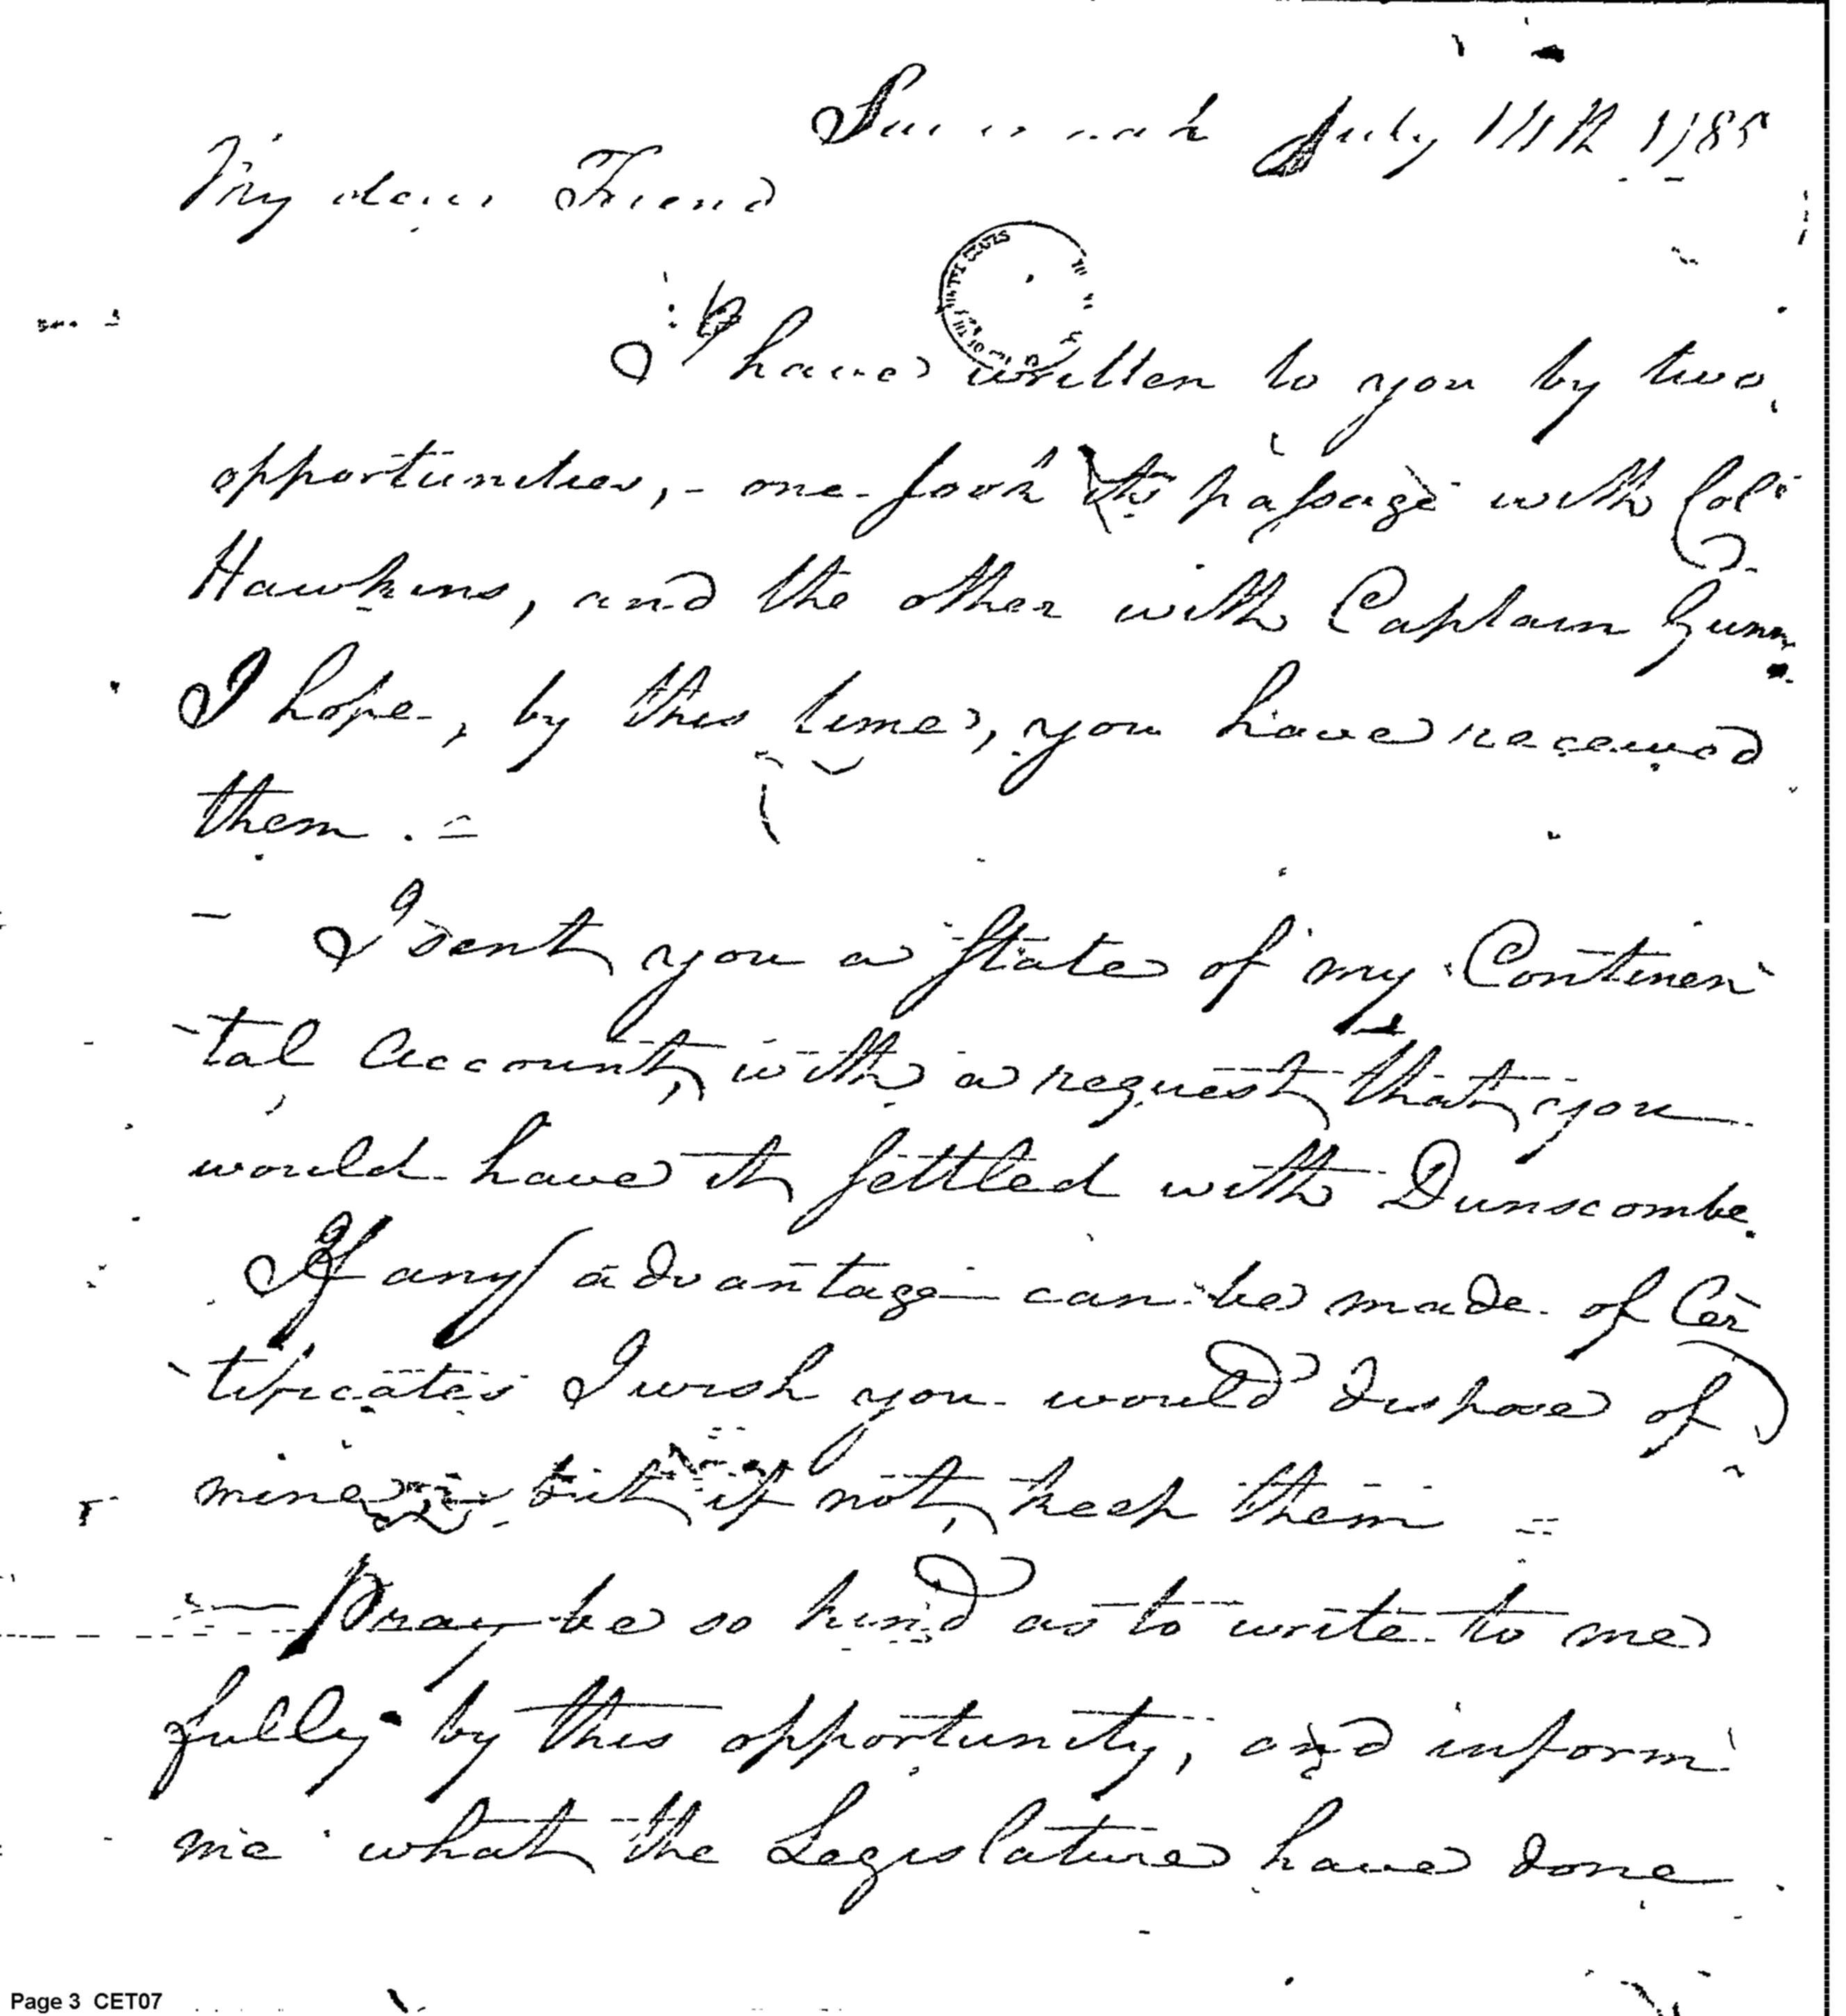 Savannah July 11th 1785
My dear Friend
I have written to you by two
opportunities, - one took its passage with Col.
Hawkins, and the other with Captain Gunn.
I hope, by this time, you have received
them. =
- I sent you a State of my Continen
-tal Account, with a request that you
would have it settled with Dunscombe.
If any advantage can be made of Cer
-tificates I wish you would dispose of
mine but if not, keep them =
- Pray be so kind as to write to me
fully by this opportunity, and inform
me what the Legislature have done
Page 3 CET07